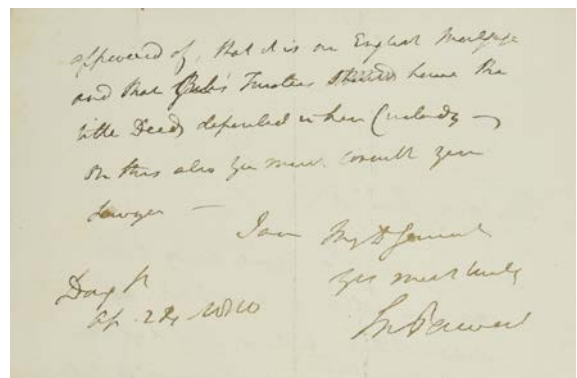 approved of, that it is on English Mortgage
and that Trustees should have the
title Deeds deposited in their Custody —
On this also you must consult your
Lawyer —
I am My D General
Yrs most truly
Ap. 24